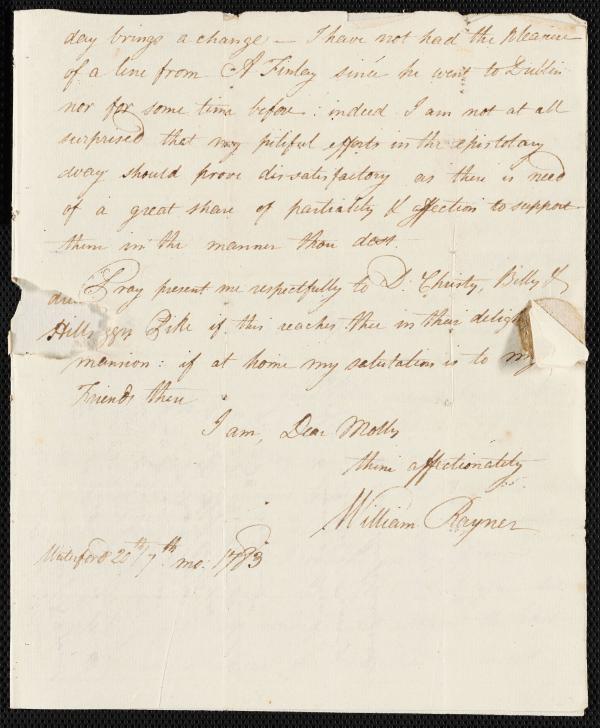 day brings a change — I have not had the pleasure
of a line from A Finlay since he went to Dublin
nor for some time before: indeed I am not at all
surprised that my pitiful efforts in the epistolary
way should prove dissatisfactory as there is need
of a great share of partiality & affection to support
them in the manner thou dost.
Pray present me respectfully to D. Christy, Billy &
Pike if this reaches thee in their
mansion: if at home my salutation is to my
Friends there
I am, Dear Molly
thine affectionately
William Rayner
Waterford 20th/7th mo: 1783